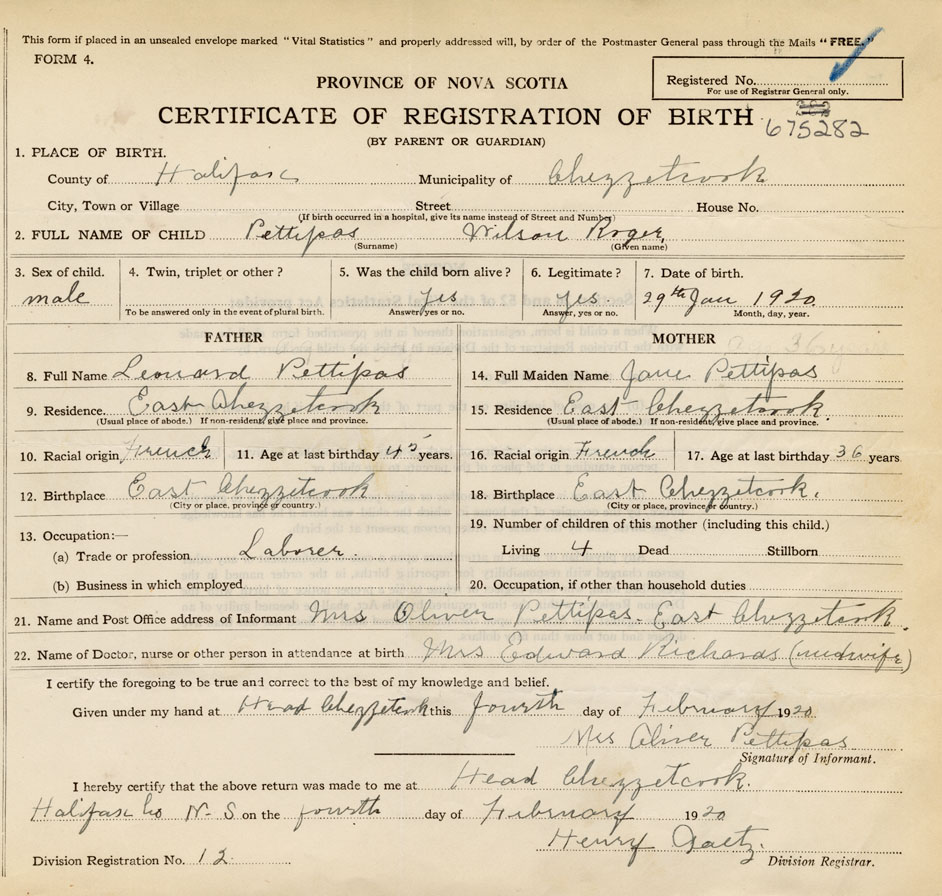 This form if placed in an unsealed envelope marked "Vital Statistics" and properly addressed will, by order of the Postmaster General pass through the Mails "FREE."
FORM 4.
Registered No.
For use of Registrar General only.
PROVINCE OF NOVA SCOTIA
CERTIFICATE OF REGISTRATION OF BIRTH
675282
(BY PARENT OR GUARDIAN)
1. PLACE OF BIRTH.
County of Halifax Municipality of Chezzetcook
City, Town or Village Street House No.
(If birth occurred in a hospital, give its name instead of Street and Number)
2. FULL NAME OF CHILD Pettipas Wilson Roger,
(Surname) (Given name)
3. Sex of child. 4. Twin, triplet or other? 5. Was the child born alive? 6. Legitimate? 7. Date of birth.
male Yes Yes 29th Jan 1920
To be answered only in the event of plural birth. Answer, yes or no. Answer, yes or no. Month, day, year.
FATHER MOTHER
8. Full Name Leonard Pettipas 14. Full Maiden Name Jane Pettipas
9. Residence. East Chezzetcook 15. Residence East Chezzetcook.
(Usual place of abode.) If non-resident, give place and province. (Usual place of abode.) If non-resident, give place and province.
10. Racial origin French 11. Age at last birthday 45 years. 16. Racial origin French 17. Age at last birthday 36 years
12. Birthplace East Chezzetcook 18. Birthplace East Chezzetcook.
(City or place, province or country.) (City or place, province or country.)
13. Occupation:— 19. Number of children of this mother (including this child.)
(a) Trade or profession Laborer. Living 4 Dead Stillborn
(b) Business in which employed 20. Occupation, if other than household duties
21. Name and Post Office address of Informant Mrs Oliver Pettipas. East Chezzetcook.
22. Name of Doctor, nurse or other person in attendance at birth Mrs Edward Richards (midwife)
I certify the foregoing to be true and correct to the best of my knowledge and belief.
Given under my hand at Head Chezzetcook this fourth day of February 1920
Mrs Oliver Pettipas
Signature of Informant.
I hereby certify that the above return was made to me at Head Chezzetcook.
Halifax Co N. S. on the fourth day of February 1920
Henry Gaetz.
Division Registration No. 12 Division Registrar.